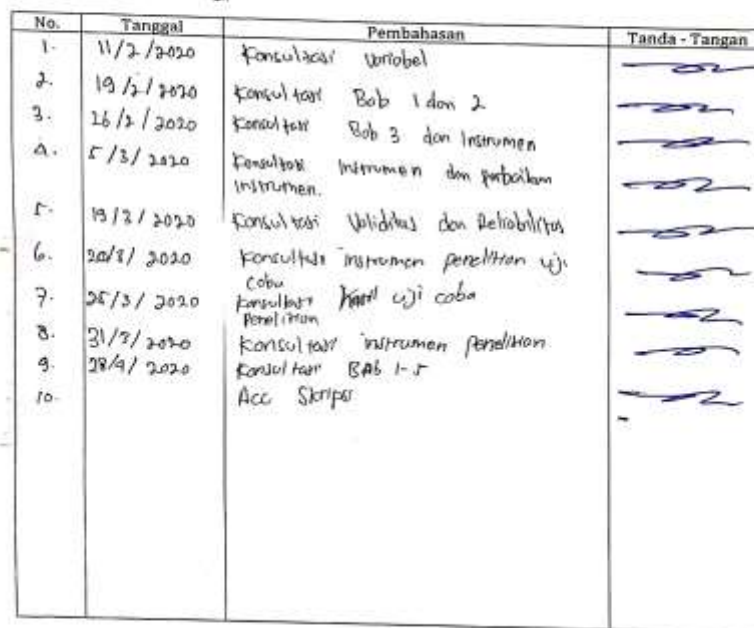 No. Tanggal Pembahasan Tanda - Tangan
1. 11/2/2020 Konsultasi Variabel
2. 19/2/2020 Konsultasi Bab 1 dan 2
3. 26/2/2020 Konsultasi Bab 3 dan Instrumen
4. 5/3/2020 Konsultasi Instrumen dan perbaikan
instrumen.
5. 19/3/2020 Konsultasi Validitas dan Reliabilitas
6. 20/3/2020 Konsultasi instrumen penelitian uji
coba
7. 25/3/2020 Konsultasi Hasil uji coba
Penelitian
8. 31/3/2020 Konsultasi instrumen penelitian
9. 28/4/2020 Konsultasi BAB 1-5
10. Acc Skripsi